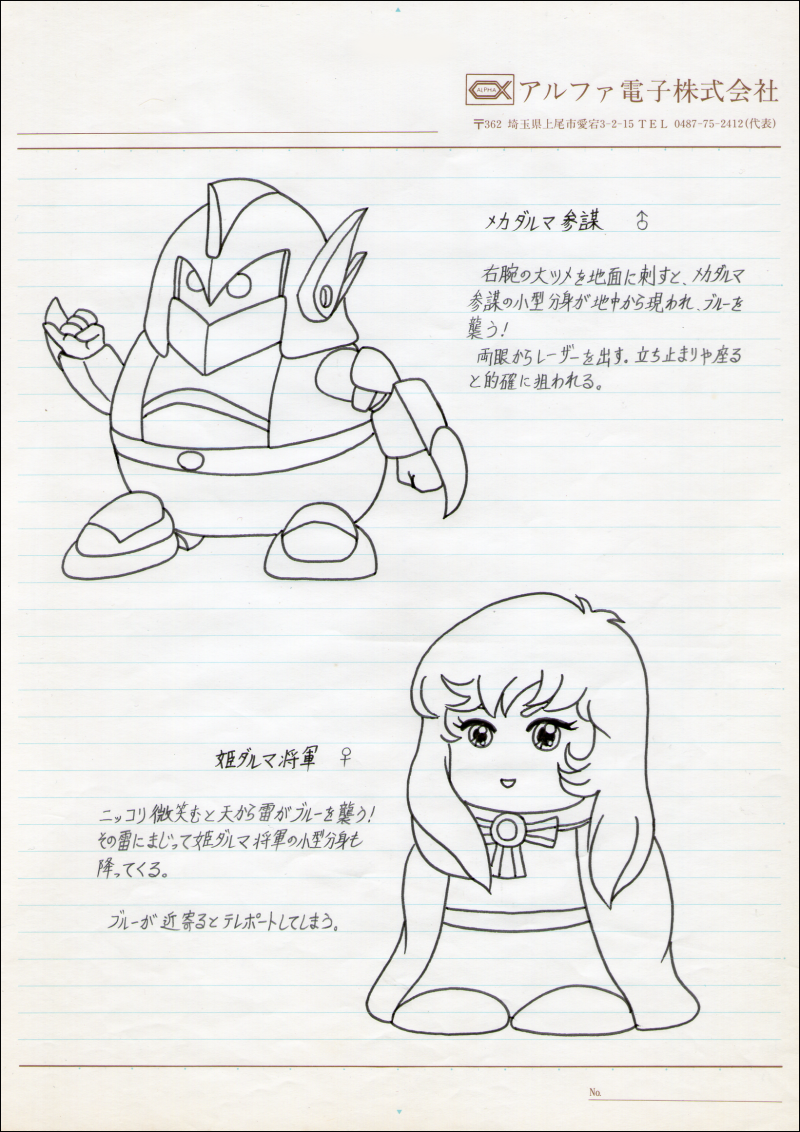 ALPHA アルファ電子株式会社
〒362 埼玉県上尾市愛宕3-2-15 TEL 0487-75-2412(代表)
メカダルマ参謀 ♂
右腕の大ツメを地面に刺すと、メカダルマ
参謀の小型分身が地中から現われ、ブルーを
襲う!
両眼からレーザーを出す。立ち止まりや座る
と的確に狙われる。
姫ダルマ将軍 ♀
ニッコリ微笑むと天から雷がブルーを襲う!
その雷にまじって姫ダルマ将軍の小型分身も
降ってくる。
ブルーが近寄るとテレポートしてしまう。
No.